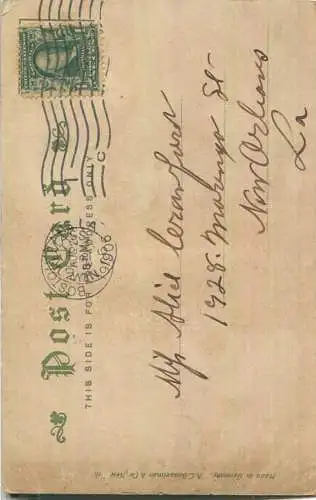 Post Card
THIS SIDE IS FOR ADDRESS ONLY
1906
Miss Alice Cranford
1928. Marengo St-
New Orleans
La
Made in Germany. A. C. Bosselman & Co., New